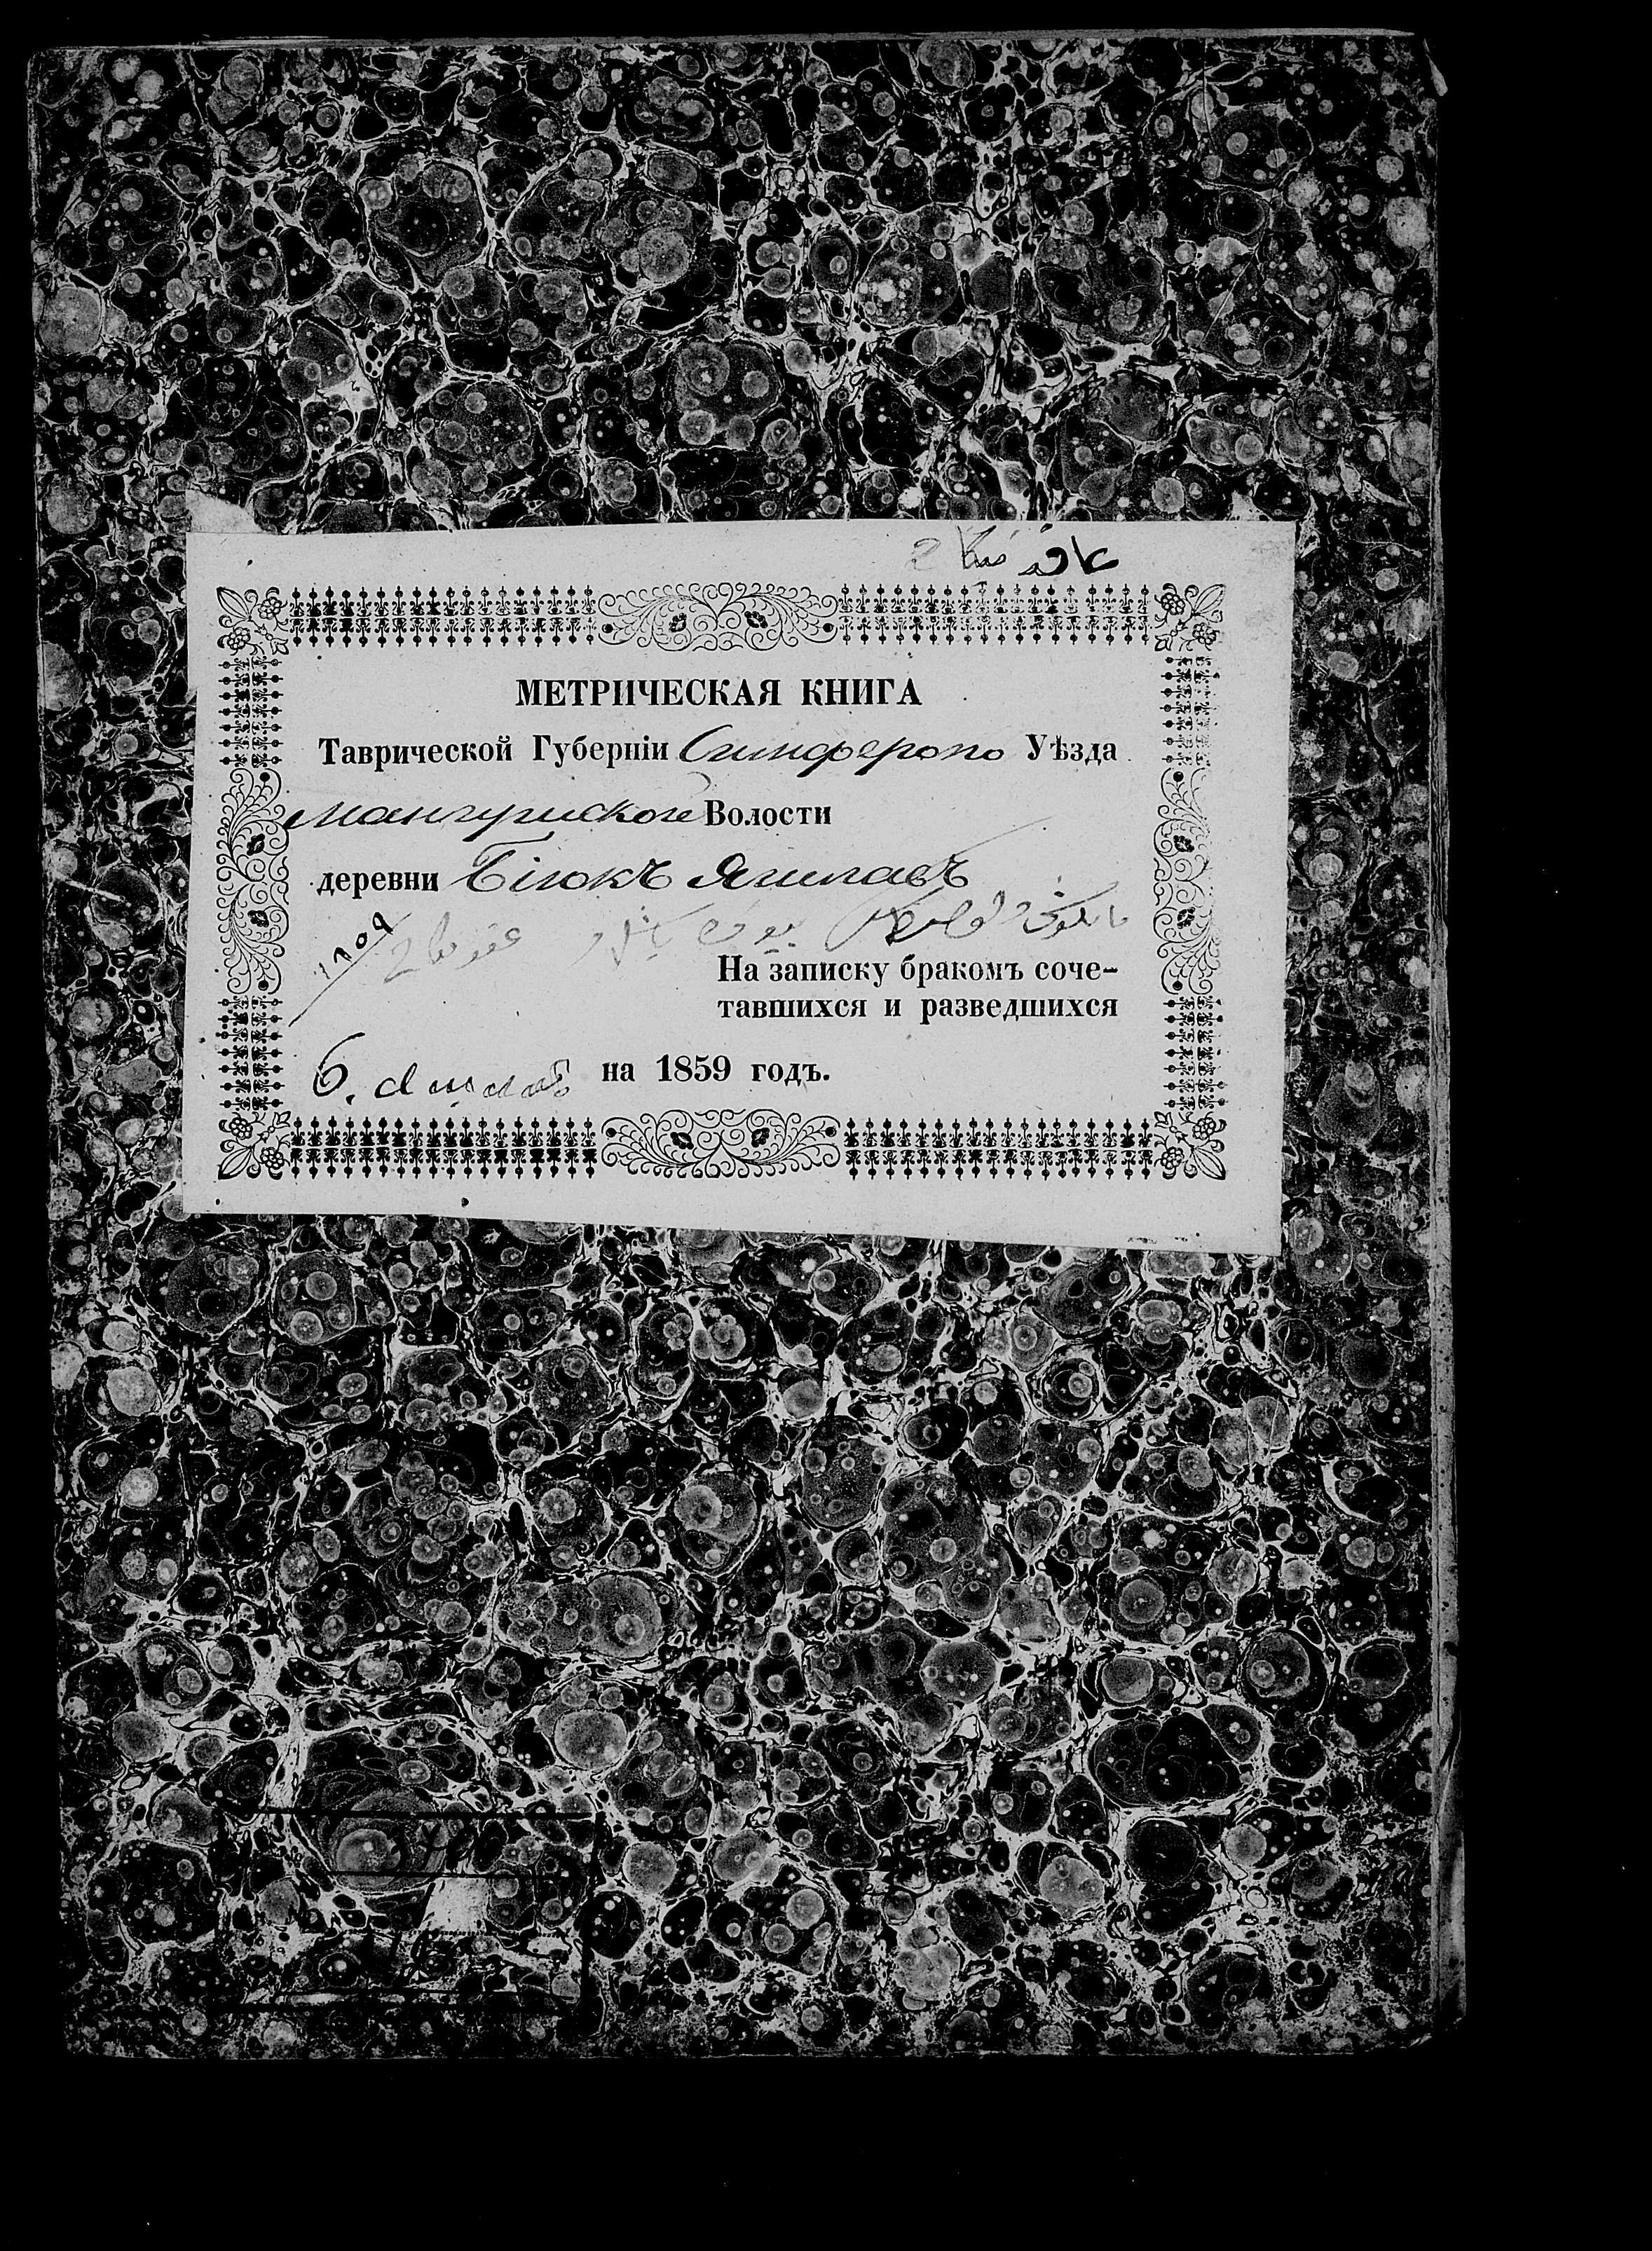 МЕТРИЧЕСКАЯ КНИГА
Таврической Губерніи Симферопо Уѣзда
Мангушской Волости
деревни Біюкъ Яшлавъ
١٨٥٩
На записку бракомъ соче-
тавшихся и разведшихся
Б. Яшлав на 1859 годъ.